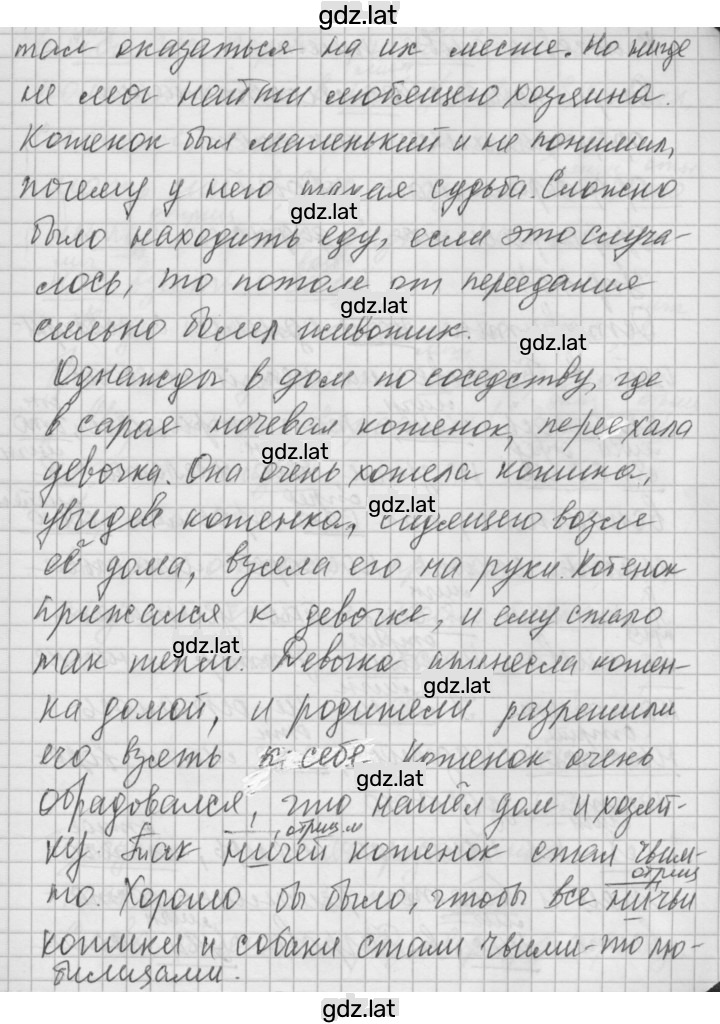 gdz.lat
тал оказаться на их месте. Но нигде
не мог найти любящего хозяина.
Котенок был маленький и не понимал,
почему у него такая судьба. Сложно
gdz.lat
было находить еду, если это случа-
лось, то потом от переедания
gdz.lat
сильно болел животик.
gdz.lat
Однажды в дом по соседству, где
в сарае ночевал котенок, переехала
gdz.lat
девочка. Она очень хотела котика,
gdz.lat
увидев котенка, сидящего возле
её дома, взяла его на руки. Котенок
прижался к девочке, и ему стало
gdz.lat
так тепло. Девочка принесла котен-
gdz.lat
ка домой, и родители разрешили
его взять к себе. Котенок очень
gdz.lat
обрадовался, что нашёл дом и хозяй-
отриц. м
ку. Так ничей котенок стал чьим-
отриц
то. Хорошо бы было, чтобы все ничьи
котики и собаки стали чьими-то лю-
бимцами.
gdz.lat